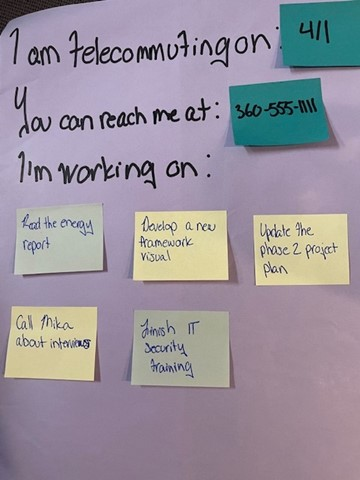 I am telecommuting on:
4/1
You can reach me at:
360-555-1111
I'm working on:
Read the energy
report
Develop a new
framework
visual
Update the
phase 2 project
plan
Call Mika
about interviews
Finish IT
security
training